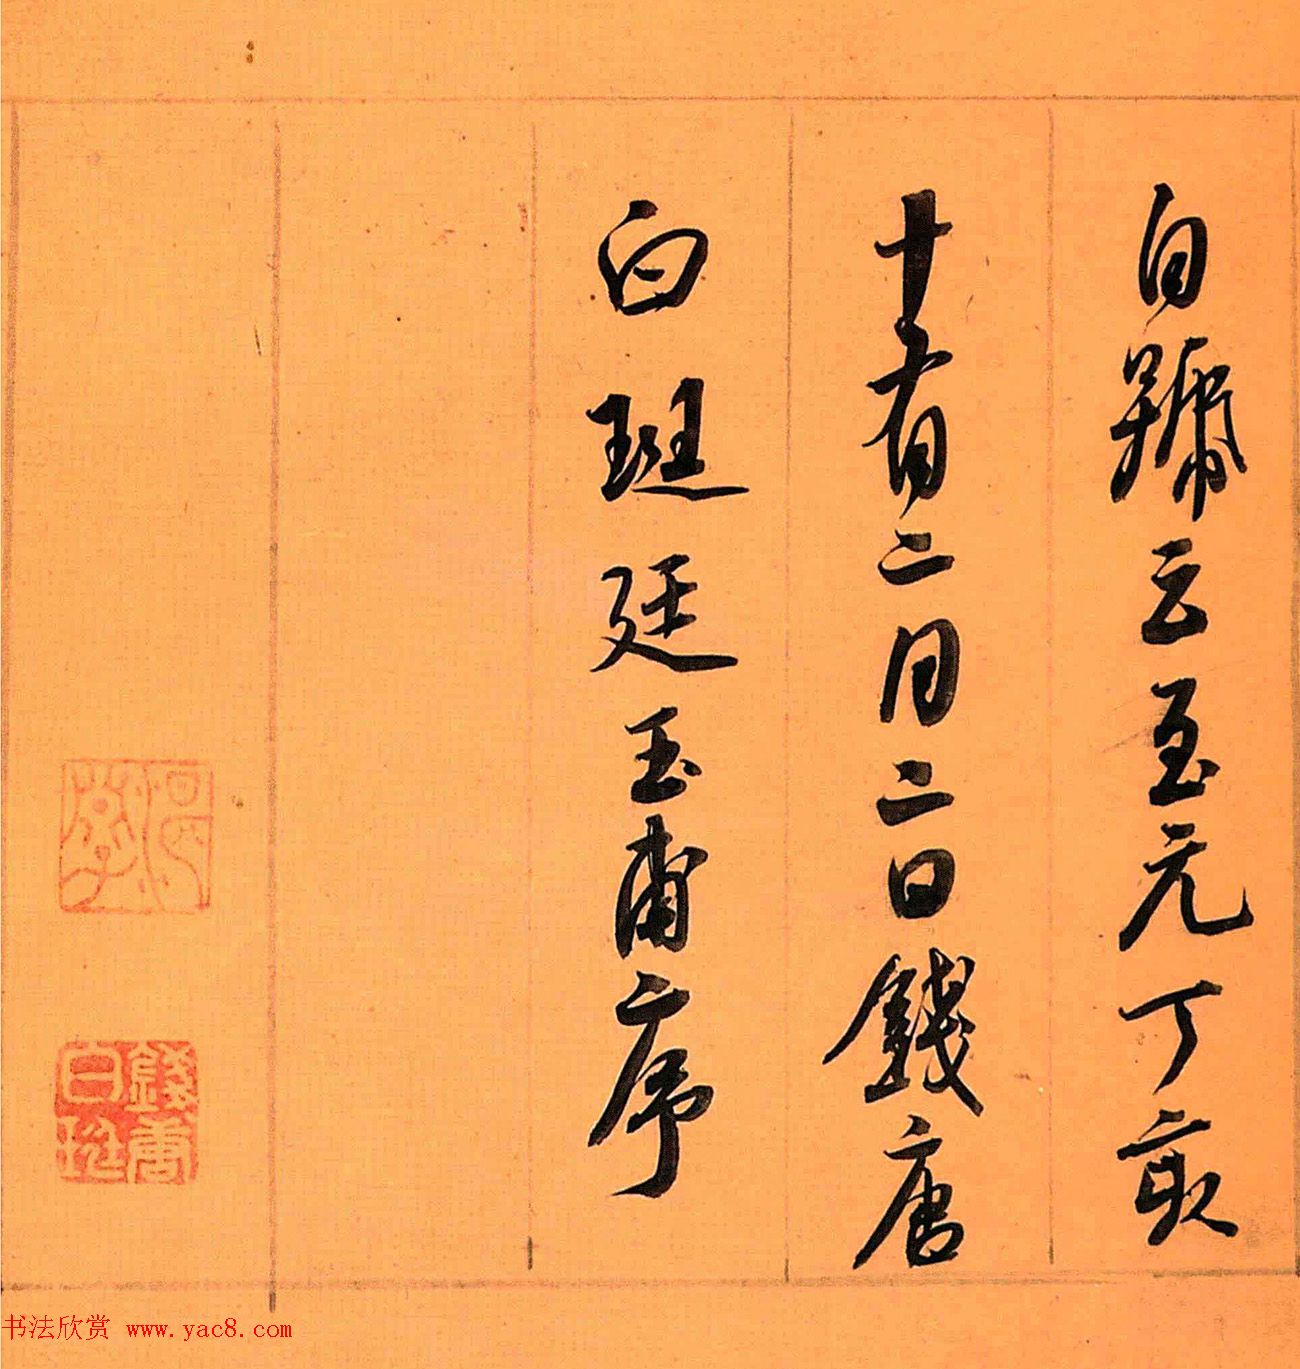 自號云至元丁亥
十有二月二日錢唐
白珽廷玉甫序
錢唐白珽
书法欣赏 www.yac8.com